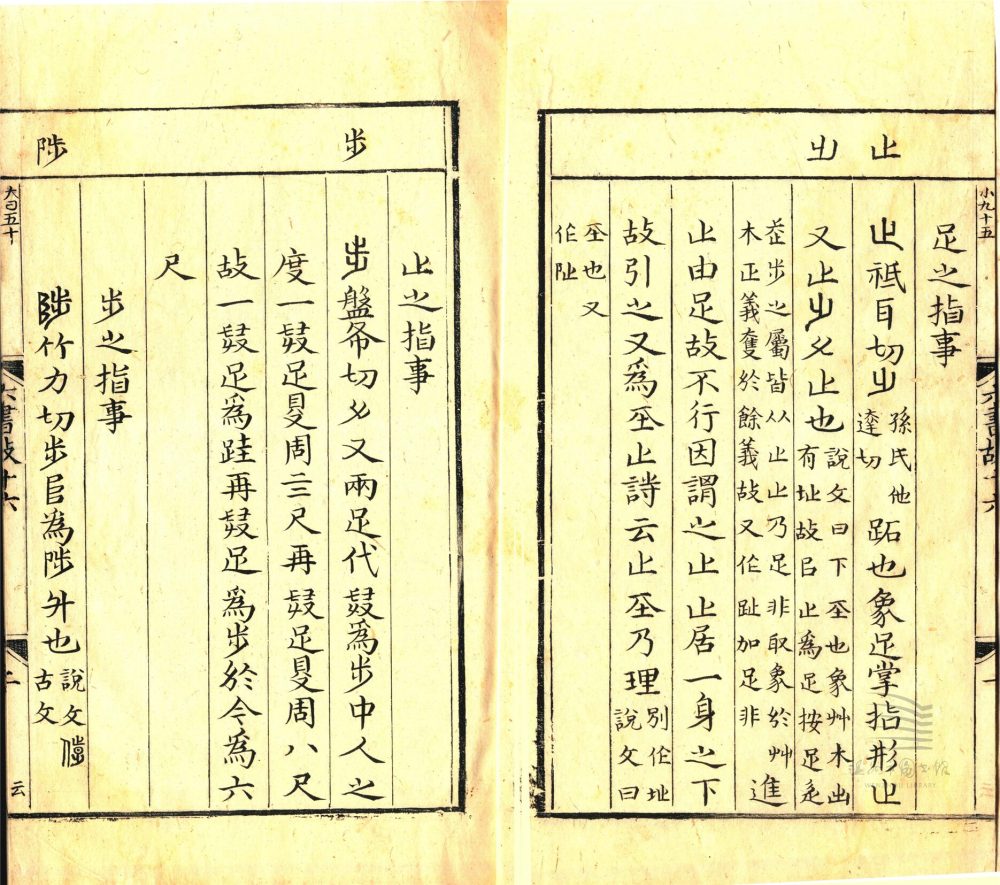 止 㞢
足之指事
止祗耳切㞢孫氏他達切跖也象足掌指形止
又止㞢之止也說文曰下坖也象艸木出有址故㠯止爲足按足辵
歮步之屬皆从止止乃足非取象於艸木正義奪於餘義故又作趾加足非進
止由足故不行因謂之止止居一身之下
故引之又爲坖止詩云止坖乃理別作址說文曰
坖也又作阯
小九十五
六書故十六
一
步 陟
止之指事
步盤夆切㞢又兩足代發爲步中人之
度一發足夏周三尺再發足夏周八尺
故一發足爲跬再發足爲步於今爲六
尺
步之指事
陟竹力切步㠯爲陟升也說文古文云
大囗五十
六書故十六
二